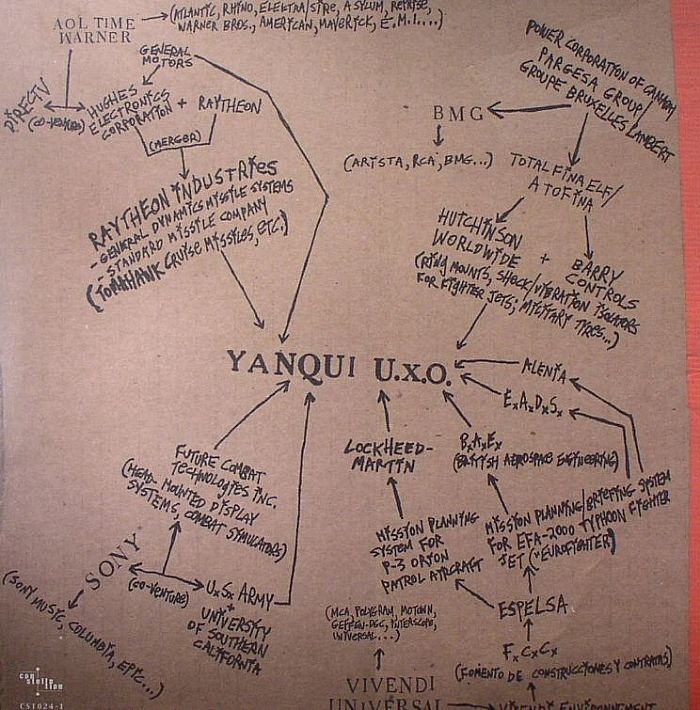 AOL TIME
WARNER
(ATLANTIC, RHINO, ELEKTRA/SIRE, ASYLUM, REPRISE,
WARNER BROS., AMERICAN, MAVERICK, E.M.I....)
GENERAL
MOTORS
DIRECTV
(CO-VENTURE)
HUGHES
ELECTRONICS
CORPORATION
+ RAYTHEON
(MERGER)
RAYTHEON INDUSTRIES
- GENERAL DYNAMICS MISSILE SYSTEMS
- STANDARD MISSILE COMPANY
(TOMAHAWK CRUISE MISSILES, ETC.)
POWER CORPORATION OF CANADA/
PARGESA GROUP/
GROUPE BRUXELLES LAMBERT
BMG
(ARISTA, RCA, BMG...)
TOTAL FINA ELF/
ATOFINA
HUTCHINSON
WORLDWIDE
+ BARRY
CONTROLS
(RING MOUNTS, SHOCK/VIBRATION ISOLATORS
FOR FIGHTER JETS, MILITARY TYRES...)
YANQUI U.X.O.
ALENIA
E.A.D.S.
LOCKHEED-
MARTIN
B.A.E.
(BRITISH AEROSPACE ENGINEERING)
FUTURE COMBAT
TECHNOLOGIES INC.
(HEAD-MOUNTED DISPLAY
SYSTEMS, COMBAT SIMULATORS)
MISSION PLANNING
SYSTEM FOR
P-3 ORION
PATROL AIRCRAFT
MISSION PLANNING/BRIEFING SYSTEM
FOR EFA-2000 TYPHOON FIGHTER
JET ("EUROFIGHTER)
SONY
(CO-VENTURE)
U.S. ARMY
+
UNIVERSITY
OF SOUTHERN
CALIFORNIA
(SONY MUSIC, COLUMBIA, EPIC...)
(MCA, POLYGRAM, MOTOWN,
GEFFEN-DGC, INTERSCOPE,
UNIVERSAL...)
ESPELSA
F.C.C.
(FOMENTO DE CONSTRUCCIONES Y CONTRATAS)
VIVENDI
UNIVERSAL
VIVENDI ENVIRONNEMENT
con
stella
tion
CST024-1